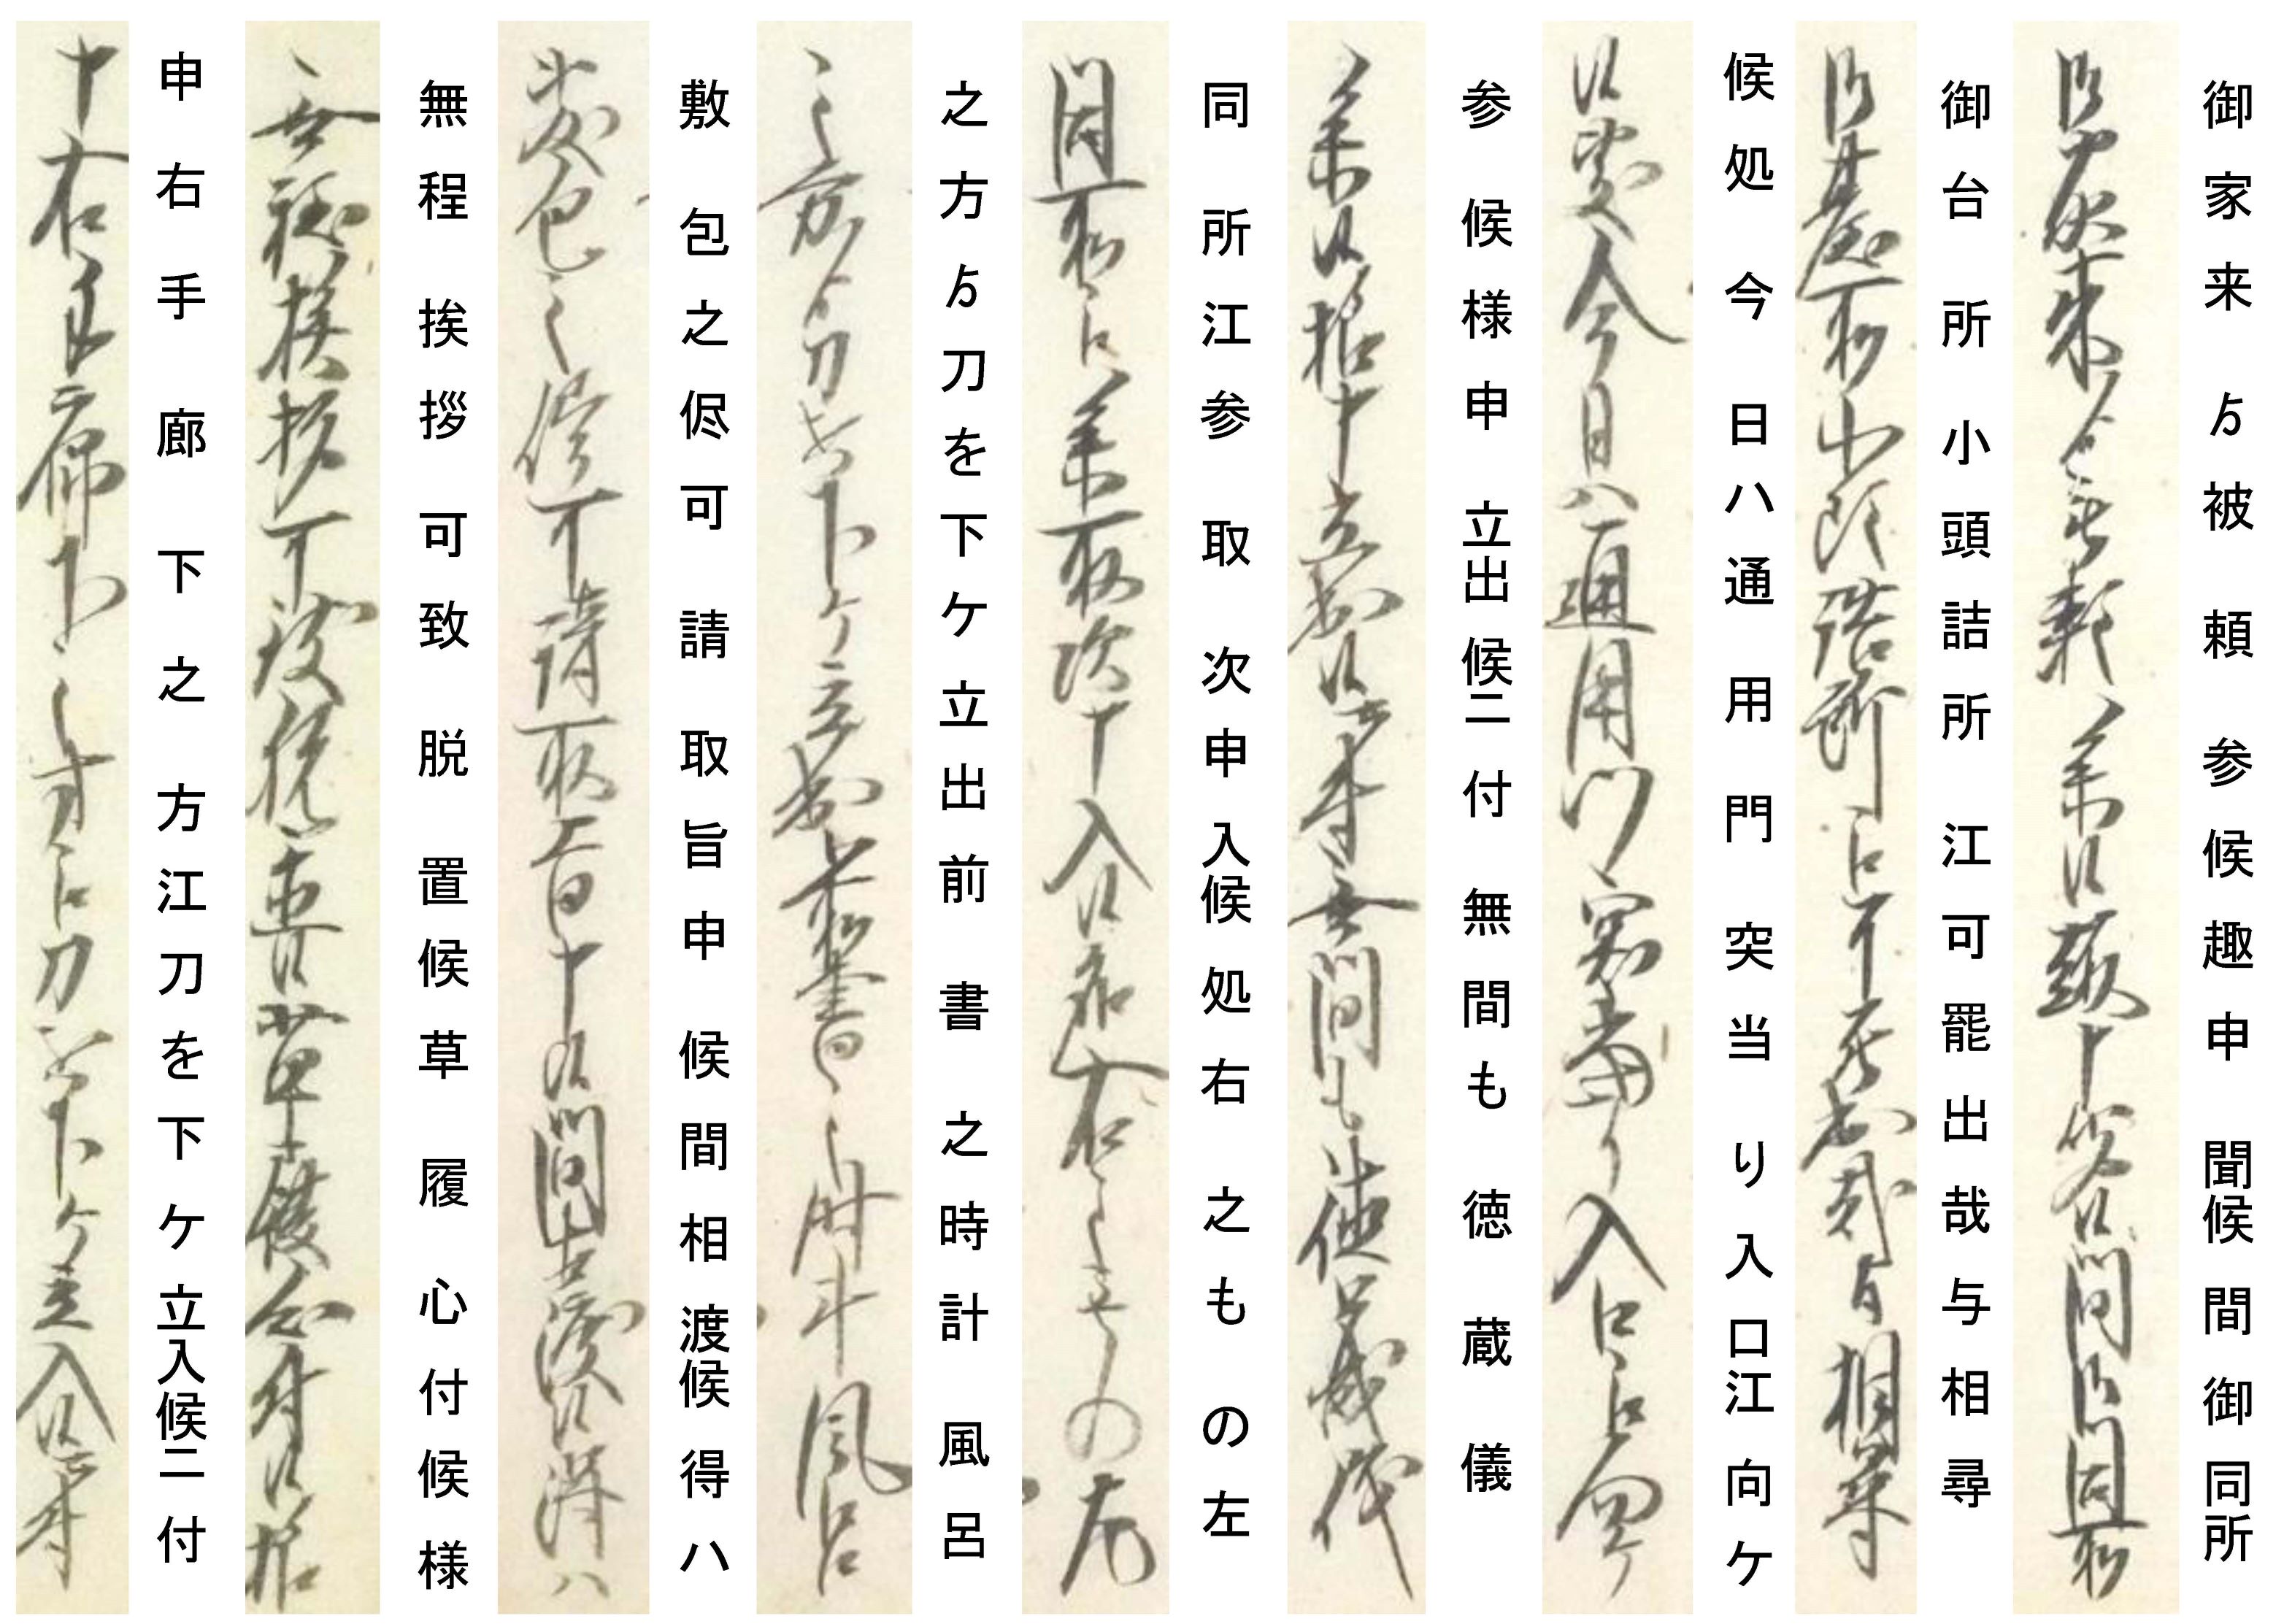 御家来ゟ被頼参候趣申聞候間御同所
御台所小頭詰所江可罷出哉与相尋
候処今日ハ通用門突当り入口江向ケ
参候様申立出候ニ付無間も徳蔵儀
同所江参取次申入候処右之もの左
之方ゟ刀を下ケ立出前書之時計風呂
敷包之侭可請取旨申候間相渡候得ハ
無程挨拶可致脱置候草履心付候様
申右手廊下之方江刀を下ケ立入候ニ付